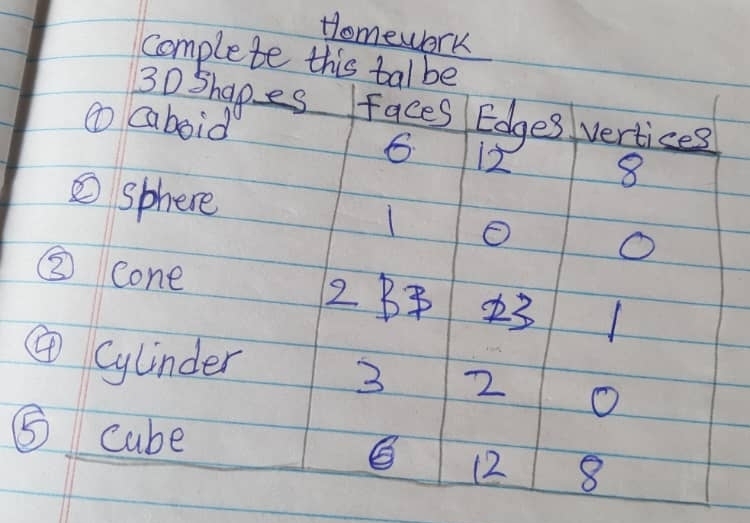 Homework
Complete this talbe
3D Shapes Faces Edges vertices
① Caboid 6 12 8
② Sphere 1 0 0
③ Cone 2 3 1
④ Cylinder 3 2 0
⑤ Cube 6 12 8